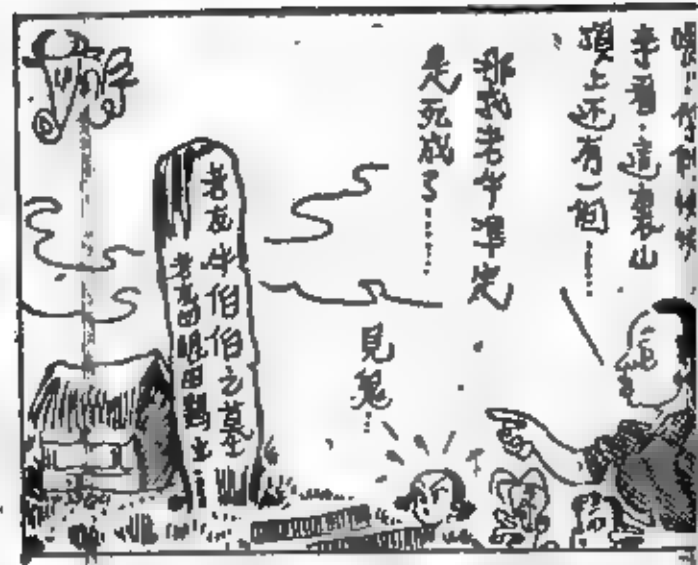 喂…你們快快
來看，這裏山
頂上还有一個……
那我老牛準定
是死成了……
見鬼…
老友牛伯伯之墓